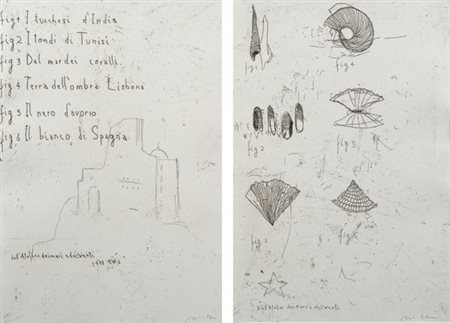 fig 1 I turchesi d'India
fig 2 I tondi di Tunisi
fig 3 Dal mar dei coralli
fig 4 Terra dell'ombra Lisbona
fig 5 Il nero d'avorio
fig 6 Il bianco di Spagna
dall'Atelier dei mari e dei venti
fig 1
fig 4
fig 2
fig 5
fig 3
fig 6